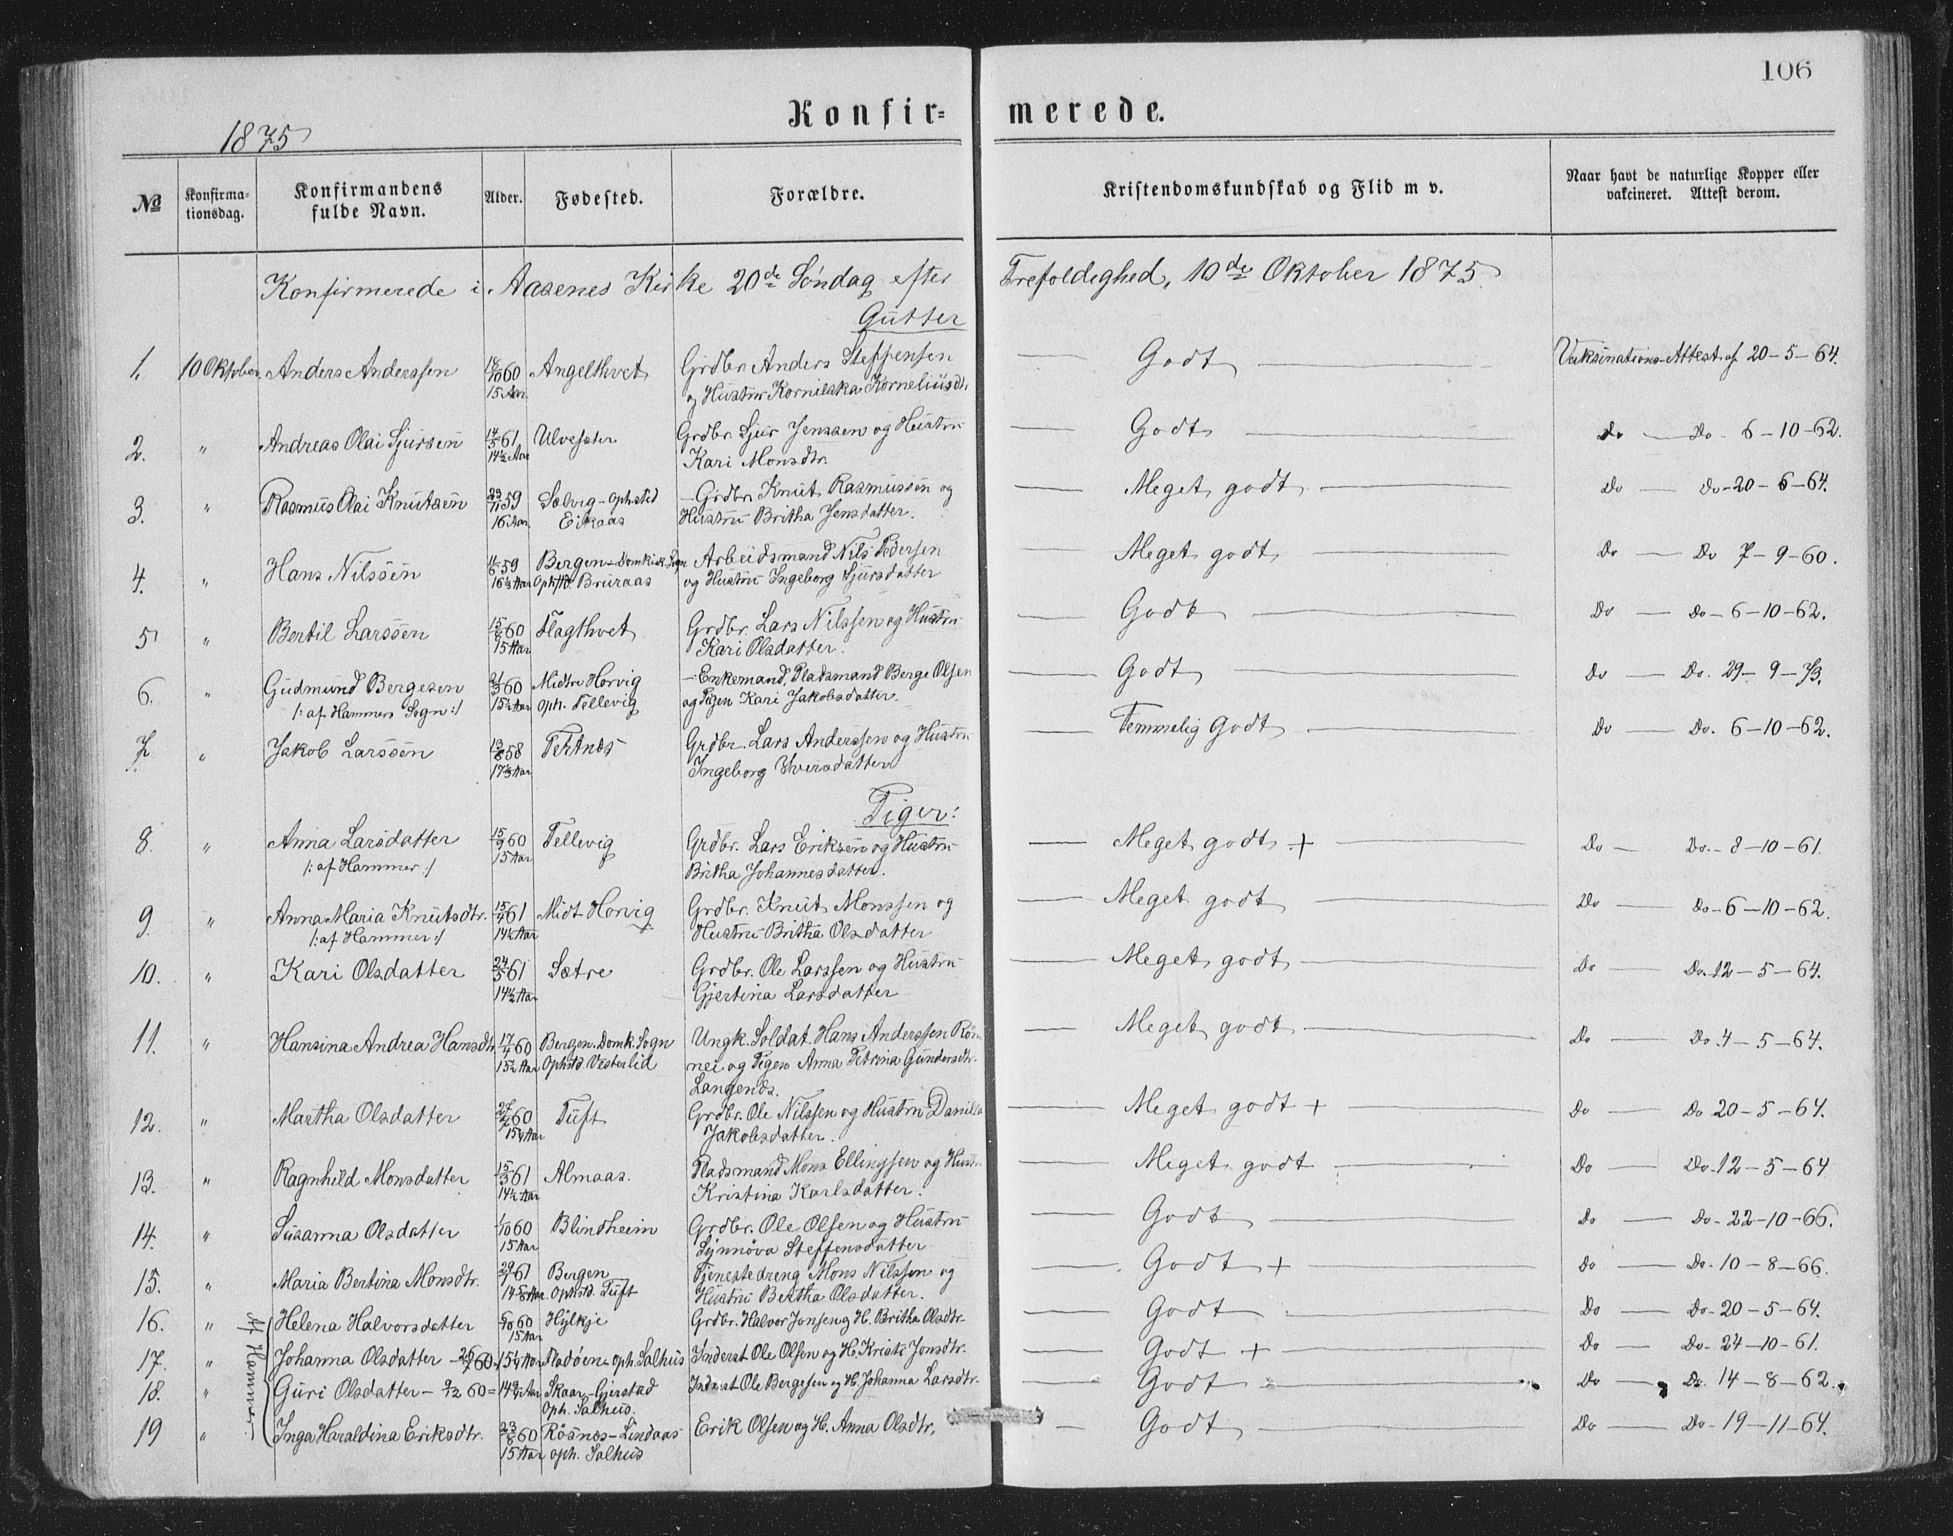 106
Konfir= merede.
1875
№ Konfirma-tionsdag. Konfirmandens fulde Navn. Alder. Fødested. Forældre. Kristendomskundskab og Flid m v. Naar havt de naturlige Kopper eller vakcineret. Attest derom.
Konfirmerede i Aasenes Kirke 20de Søndag efter Trefoldighed, 10de Oktober 1875
Gutter
1. 10 Oktober. Anders Anderssen 60 Angelthvet Grdbr. Anders Steffensen — Godt — Vaksinations-Attest af 20-5-64.
15 Aar. og Hustru Kornilska Korneliusdtr
2. " Andreas Olai Sjursen 61 Ulvesæter Grdbr. Sjur Jenssen og Hustru — Godt — Do — Do. 6-10-62.
14½ Aar Kari Monsdtr.
3. " Rasmus Olai Knutsen 59 Sælvig-ophsted — Grdbr. Knut Rasmussen og — Meget godt — Do — Do-20-6-64.
16 Aar. Eikaas Hustru Britha Jensdatter.
4. " Hans Nilssen 59 Bergen-Domkirk. Sogn Arbeidsmand Nils Pedersen — Meget godt — Do — Do 7-9-60.
Ophstd. Bruraas og Hustru Ingeborg Sjursdatter
5 " Bertil Larssen 60 Flagthvet Grdbr. Lars Nilssen og Hustru — Godt — Do — Do-6-10-62.
15 Aar Kari Olsdatter.
6. " Gudmund Bergesen 60 Midtre Horvig — Enkemand, Pladsmand Berge Olsen — Godt — Do — Do. 29-9-73.
/: af Hammers Sogn :/ oph. Tellevig og Pigen Kari Jakobsdatter.
7. " Jakob Larssen 58 Tertnes Grdbr. Lars Anderssen og Hustru — Temmelig Godt — Do — Do. 6-10-62.
Ingeborg Iversdatter
Piger:
8. " Anna Larsdatter 60 Tellevig Grdbr. Lars Eriksen og Hustru — Meget godt + — Do — Do.-8-10-61.
/: af Hammer :/ 15 Aar Britha Johannesdatter.
9 " Anna Maria Knutsdtr. 61 Midt Horvig Grdbr. Knut Monssen og — Meget godt — Do — Do-6-10-62.
/: af Hammer :/ 14½ Aar Hustru Britha Olsdatter
10. " Kari Olsdatter 61 Sætre Grdbr. Ole Larssen og Hustru — Meget godt — Do — Do.12-5-64.
14½ Aar Gjertina Larsdatter
11. " Hansina Andrea Hansdtr. 60 Bergen. Domk. Sogn Ungk. Soldat Hans Anderssen Røn- — Meget godt — Do — Do.4-5-64.
Ophstd. Vesterlid nei og Pigen Anna Petrina Gundersdtr.
12. " Martha Olsdatter 60 Tuft Grdbr. Ole Nilssen og Hustru Danilla — Meget godt + — Do — Do 20-5-64.
Jakobsdatter.
13. " Ragnhild Monsdatter 61 Almaas. Pladsmand Mons Ellingsen og Hustr. — Meget godt — Do — Do.12-5-64
14½ Aar Kristina Karlsdatter.
14. " Susanna Olsdatter 60 Blindheim Grdbr. Ole Olsen og Hustru — Godt — Do — Do.-22-10-66.
15 Aar Synnøva Steffensdatter
15. " Maria Bertina Monsdtr. 61 Bergen Tjenestedreng Mons Nilssen og — Godt + — Do — Do.-10-8-66.
Ophstd. Tuft Hustru Bertha Olsdatter.
16. " Helena Halvorsdatter 60 Hylkje Grdbr. Halvor Jonsen og H. Britha Olsdtr. — Godt — Do — Do-20-5-64.
15 Aar
17. " Johanna Olsdatter - 60 - 15¼ Aar Fladøen. oph. Salhus Inderst Ole Olsen og H. Kristi Jonsdtr. — Godt + — Do — Do.-24-10-61.
18. " Guri Olsdatter - 60 = Aar Skaar-Gjerstad Inderst Ole Bergesen og H. Johanna Larsdtr. — Godt — Do — Do. 14-8-62.
Oph. Salhus.
19 " Inga Haraldina Eriksdtr. 60 Røsnes-Lindaas Erik Olsen og H. Anna Olsdtr. — Godt — Do — Do-19-11-64.
15 Aar oph. Salhus
af Hammer